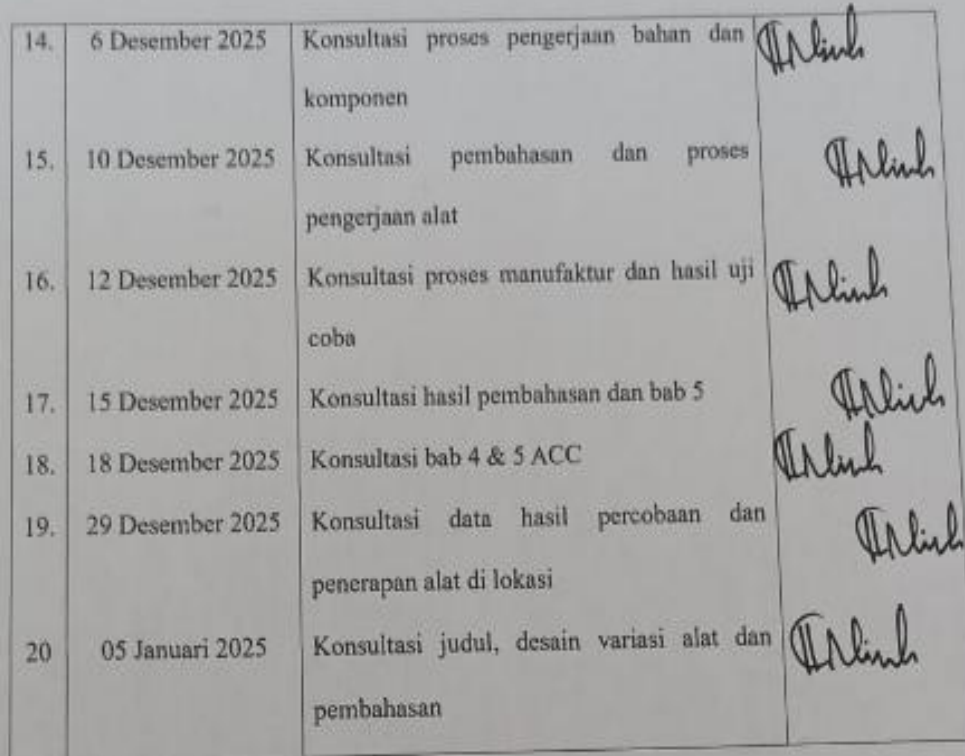 14. 6 Desember 2025 Konsultasi proses pengerjaan bahan dan
komponen
15. 10 Desember 2025 Konsultasi pembahasan dan proses
pengerjaan alat
16. 12 Desember 2025 Konsultasi proses manufaktur dan hasil uji
coba
17. 15 Desember 2025 Konsultasi hasil pembahasan dan bab 5
18. 18 Desember 2025 Konsultasi bab 4 & 5 ACC
19. 29 Desember 2025 Konsultasi data hasil percobaan dan
penerapan alat di lokasi
20 05 Januari 2025 Konsultasi judul, desain variasi alat dan
pembahasan